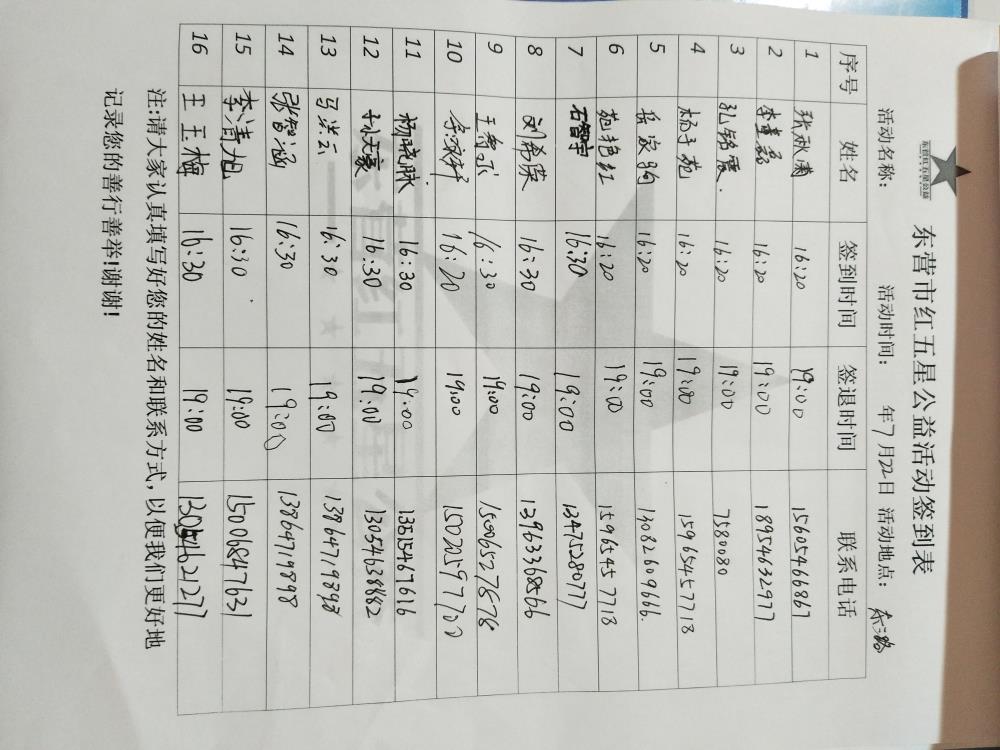 东营红五星公益
东营市红五星公益活动签到表
活动名称： 活动时间： 年7月22日 活动地点： 东三路
序号 姓名 签到时间 签退时间 联系电话
1 张秋青 16:20 19:00 15605466867
2 李 16:20 19:00 18954632977
3 孔锦霞 16:20 19:00 7580080
4 杨子苑 16:20 19:00 15965457718
5 岳家驹 16:20 19:00 13082609666
6 苑艳红 16:20 19:00 15965457718
7 石智宇 16:30 19:00 13475280777
8 刘希瑛 16:30 19:00 13963368566
9 王 16:30 19:00 15006527878
10 16:20 19:00 15002597700
11 杨晓脉 16:30 19:00 13515467616
12 16:30 19:00 13054638882
13 马洪云 16:30 19:00 13864719898
14 张智涵 16:30 19:00 13864719898
15 李清旭 16:30 19:00 15006847631
16 王玉梅 16:30 19:00 13054621277
注:请大家认真填写好您的姓名和联系方式，以便我们更好地
记录您的善行善举!谢谢!